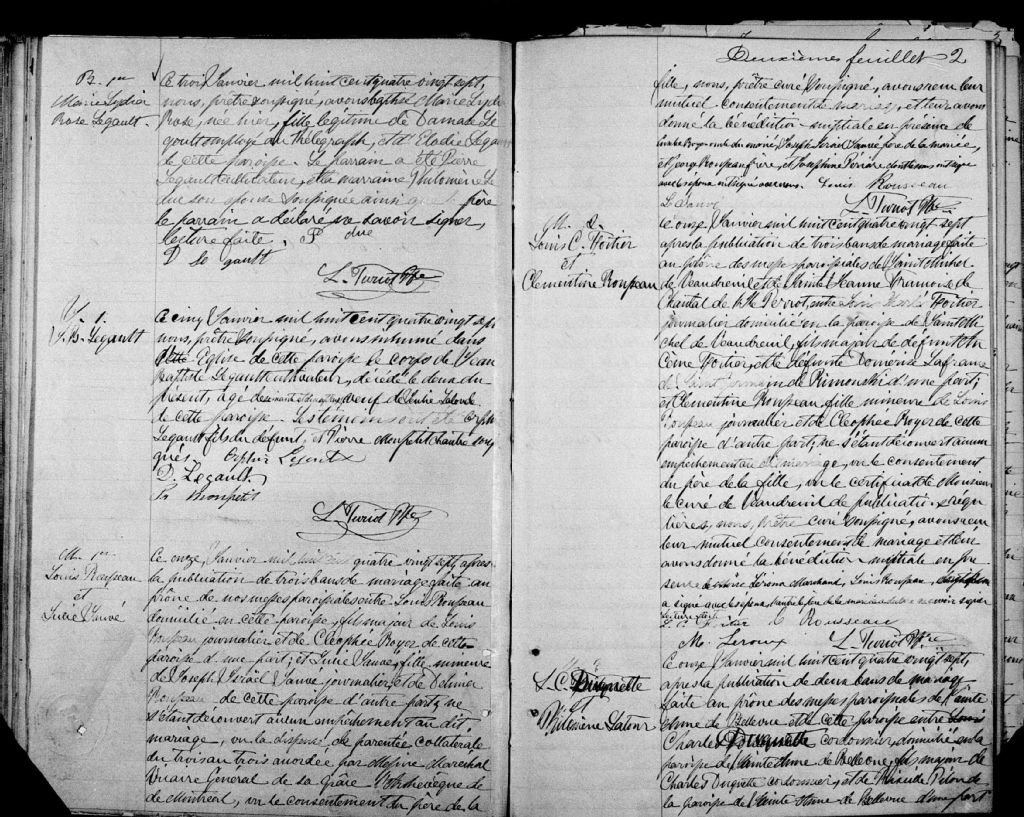 B. 1er
Marie Lydia
Rose Legault.
Ce trois Janvier mil huit cent quatre vingt sept,
nous, prêtre soussigné, avons baptisé Marie Lydia
Rose, née hier, fille légitime de Damase Le
gault employé au Thélégraph, et d'Elodie Legault
de cette paroisse. Le parrain a été Pierre
Legault cultivateur, et la marraine Philomène Le
duc son épouse soussignée ainsi que le père
le parrain a déclaré ne savoir signer,
lecture faite. P due
D Legault
L. Turiot Ptre
S. 1.
J. B. Legault
Ce cinq Janvier mil huit cent quatre vingt sept
nous, prêtre soussigné, avons inhumé dans
cette Eglise de cette paroisse le corps de Jean
Baptiste Legault cultivateur, décédé le deux du
présent, agé de veuf de Lalonde
de cette paroisse. Les témoins ont été
Legault fils du défunt, et Pierre Monpetit chantre sous
signés. Legault
D. Legault
Monpetit
L. Turiot Ptre
M. 1er
Louis Rousseau
et
Julie Sauvé
Ce onze Janvier mil huit cent quatre vingt sept, après
la publication de trois bans de mariage faite au
prône de nos messes paroissiales entre Louis Rousseau
domicilié en cette paroisse, fils majeur de Louis
Rousseau journalier et de Cléophée Royer de cette
paroisse d'une part; et Julie Sauvé, fille mineure
de Joseph Israël Sauvé journalier, et de Delima
Rousseau de cette paroisse d'autre part; ne
s'étant découvert aucun empêchement au dit
mariage, vu la dispense de parentée collatérale
du trois au trois accordée par messire Maréchal
Vicaire General de sa Grâce l'Archevêque de
de Montréal, vu le consentement du père de la
Deuxième feuillet 2
fille, nous, prêtre curé soussigné, avons reçu leur
mutuel consentement de mariage, et leur avons
donné la bénédiction nuptiale en présence de
Louis Rousseau du marié, Joseph Israël Sauvé père de la mariée,
et Georg Rousseau frère, et Joséphine
avec les époux ont signé avec nous. Louis Rousseau
Sauvé L. Turiot Ptre
M. 2.
Louis C. Poitier
et
Clementine Rousseau
Ce onze Janvier mil huit cent quatre vingt sept
après la publication de trois bans de mariage faite
au prône des messes paroissiales de Saint Michel
de Vaudreuil et de Sainte Jeanne Françoise de
Chantal de l'Ile Perrot, entre Louis Charles Poitier
journalier domicilié en la paroisse de Saint Mi
chel de Vaudreuil, fils majeur de défunt
Poitier, et de défunte Domérina Lafrance
de Saint Germain de Rimouski d'une part;
et Clémentine Rousseau, fille mineure de Louis
Rousseau journalier et de Cléophée Royer de cette
paroisse d'autre part; ne s'étant découvert aucun
empêchement au dit mariage, vu le consentement
du père de la fille, vu le certificat de Monsieur
le curé de Vaudreuil de publications régu
lières, nous, prêtre curé soussigné, avons reçu
leur mutuel consentement de mariage et leur
avons donné la bénédiction nuptiale en pré
sence de Marchand, Louis Rousseau,
a signé avec les époux,
lecture faite.
L. C. Poitier C Rousseau
M. Leroux L. Turiot Ptre
L. C. Duquette
et
Philomène Latour
Ce onze Janvier mil huit cent quatre vingt sept,
après la publication de deux bans de mariage
faite au prône des messes paroissiales de Sainte
Anne de Bellevue et de cette paroisse entre Louis
Charles Duquette cordonnier, domicilié en la
paroisse de Sainte Anne de Bellevue, fils majeur de
Charles Duquette cordonnier, et de Pilon de
la paroisse de Sainte Anne de Bellevue d'une part